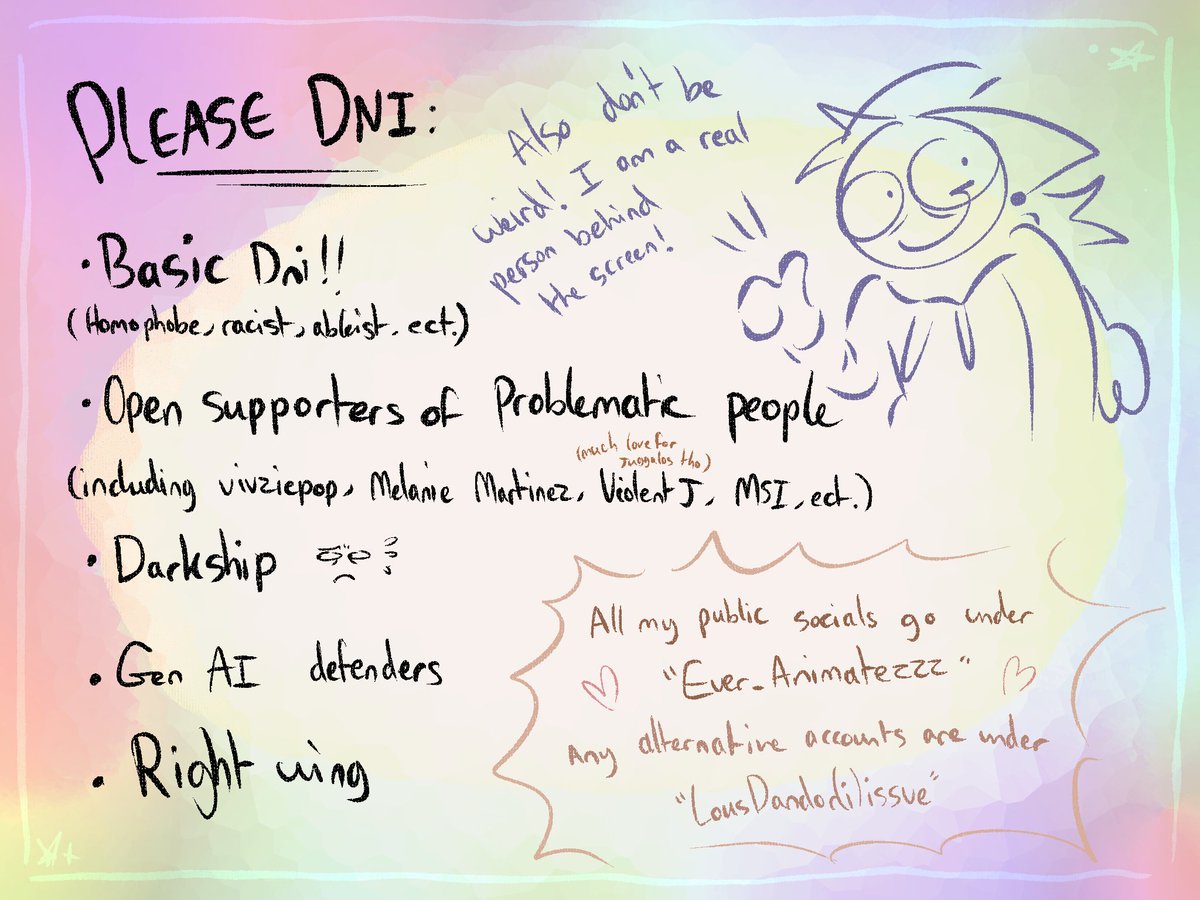 PLEASE DNI:
Also don't be
weird! I am a real
person behind
the screen!
• Basic Dni!!
(Homophobe, racist, ableist, ect.)
• Open supporters of Problematic people
(much love for
Juggalos tho)
(including vivziepop, Melanie Martinez, Violent J, MSI, ect.)
• Darkship
• Gen AI defenders
• Right wing
All my public socials go under
"Ever_Animatezzz"
Any alternative accounts are under